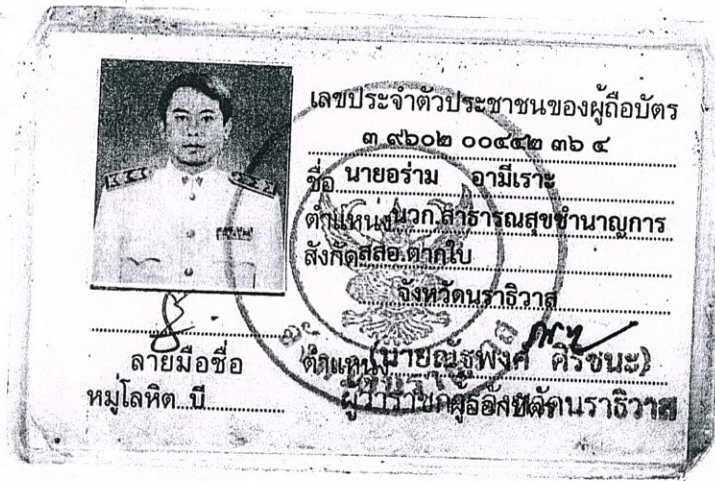 เลขประจำตัวประชาชนของผู้ถือบัตร
๓ ๙๖๐๒ ๐๐๔๔๒ ๓๖ ๔
ชื่อ นายอร่าม อามีเราะ
ตำแหน่ง นวก.สาธารณสุขชำนาญการ
สังกัด สสอ.ตากใบ
จังหวัดนราธิวาส
ลายมือชื่อ
ตำแหน่ง (นายณัฐพงศ์ ศิริชนะ)
หมู่โลหิต บี
ผู้ว่าราชการจังหวัดนราธิวาส
ผู้ออกบัตร